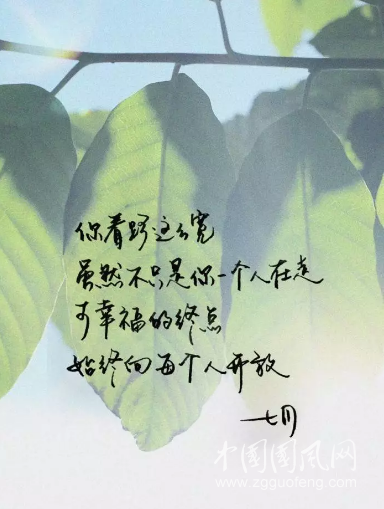 你看路这么宽
虽然不只是你一个人在走
可幸福的终点
始终向每个人开放
七月
中国国风网
www.zgguofeng.com